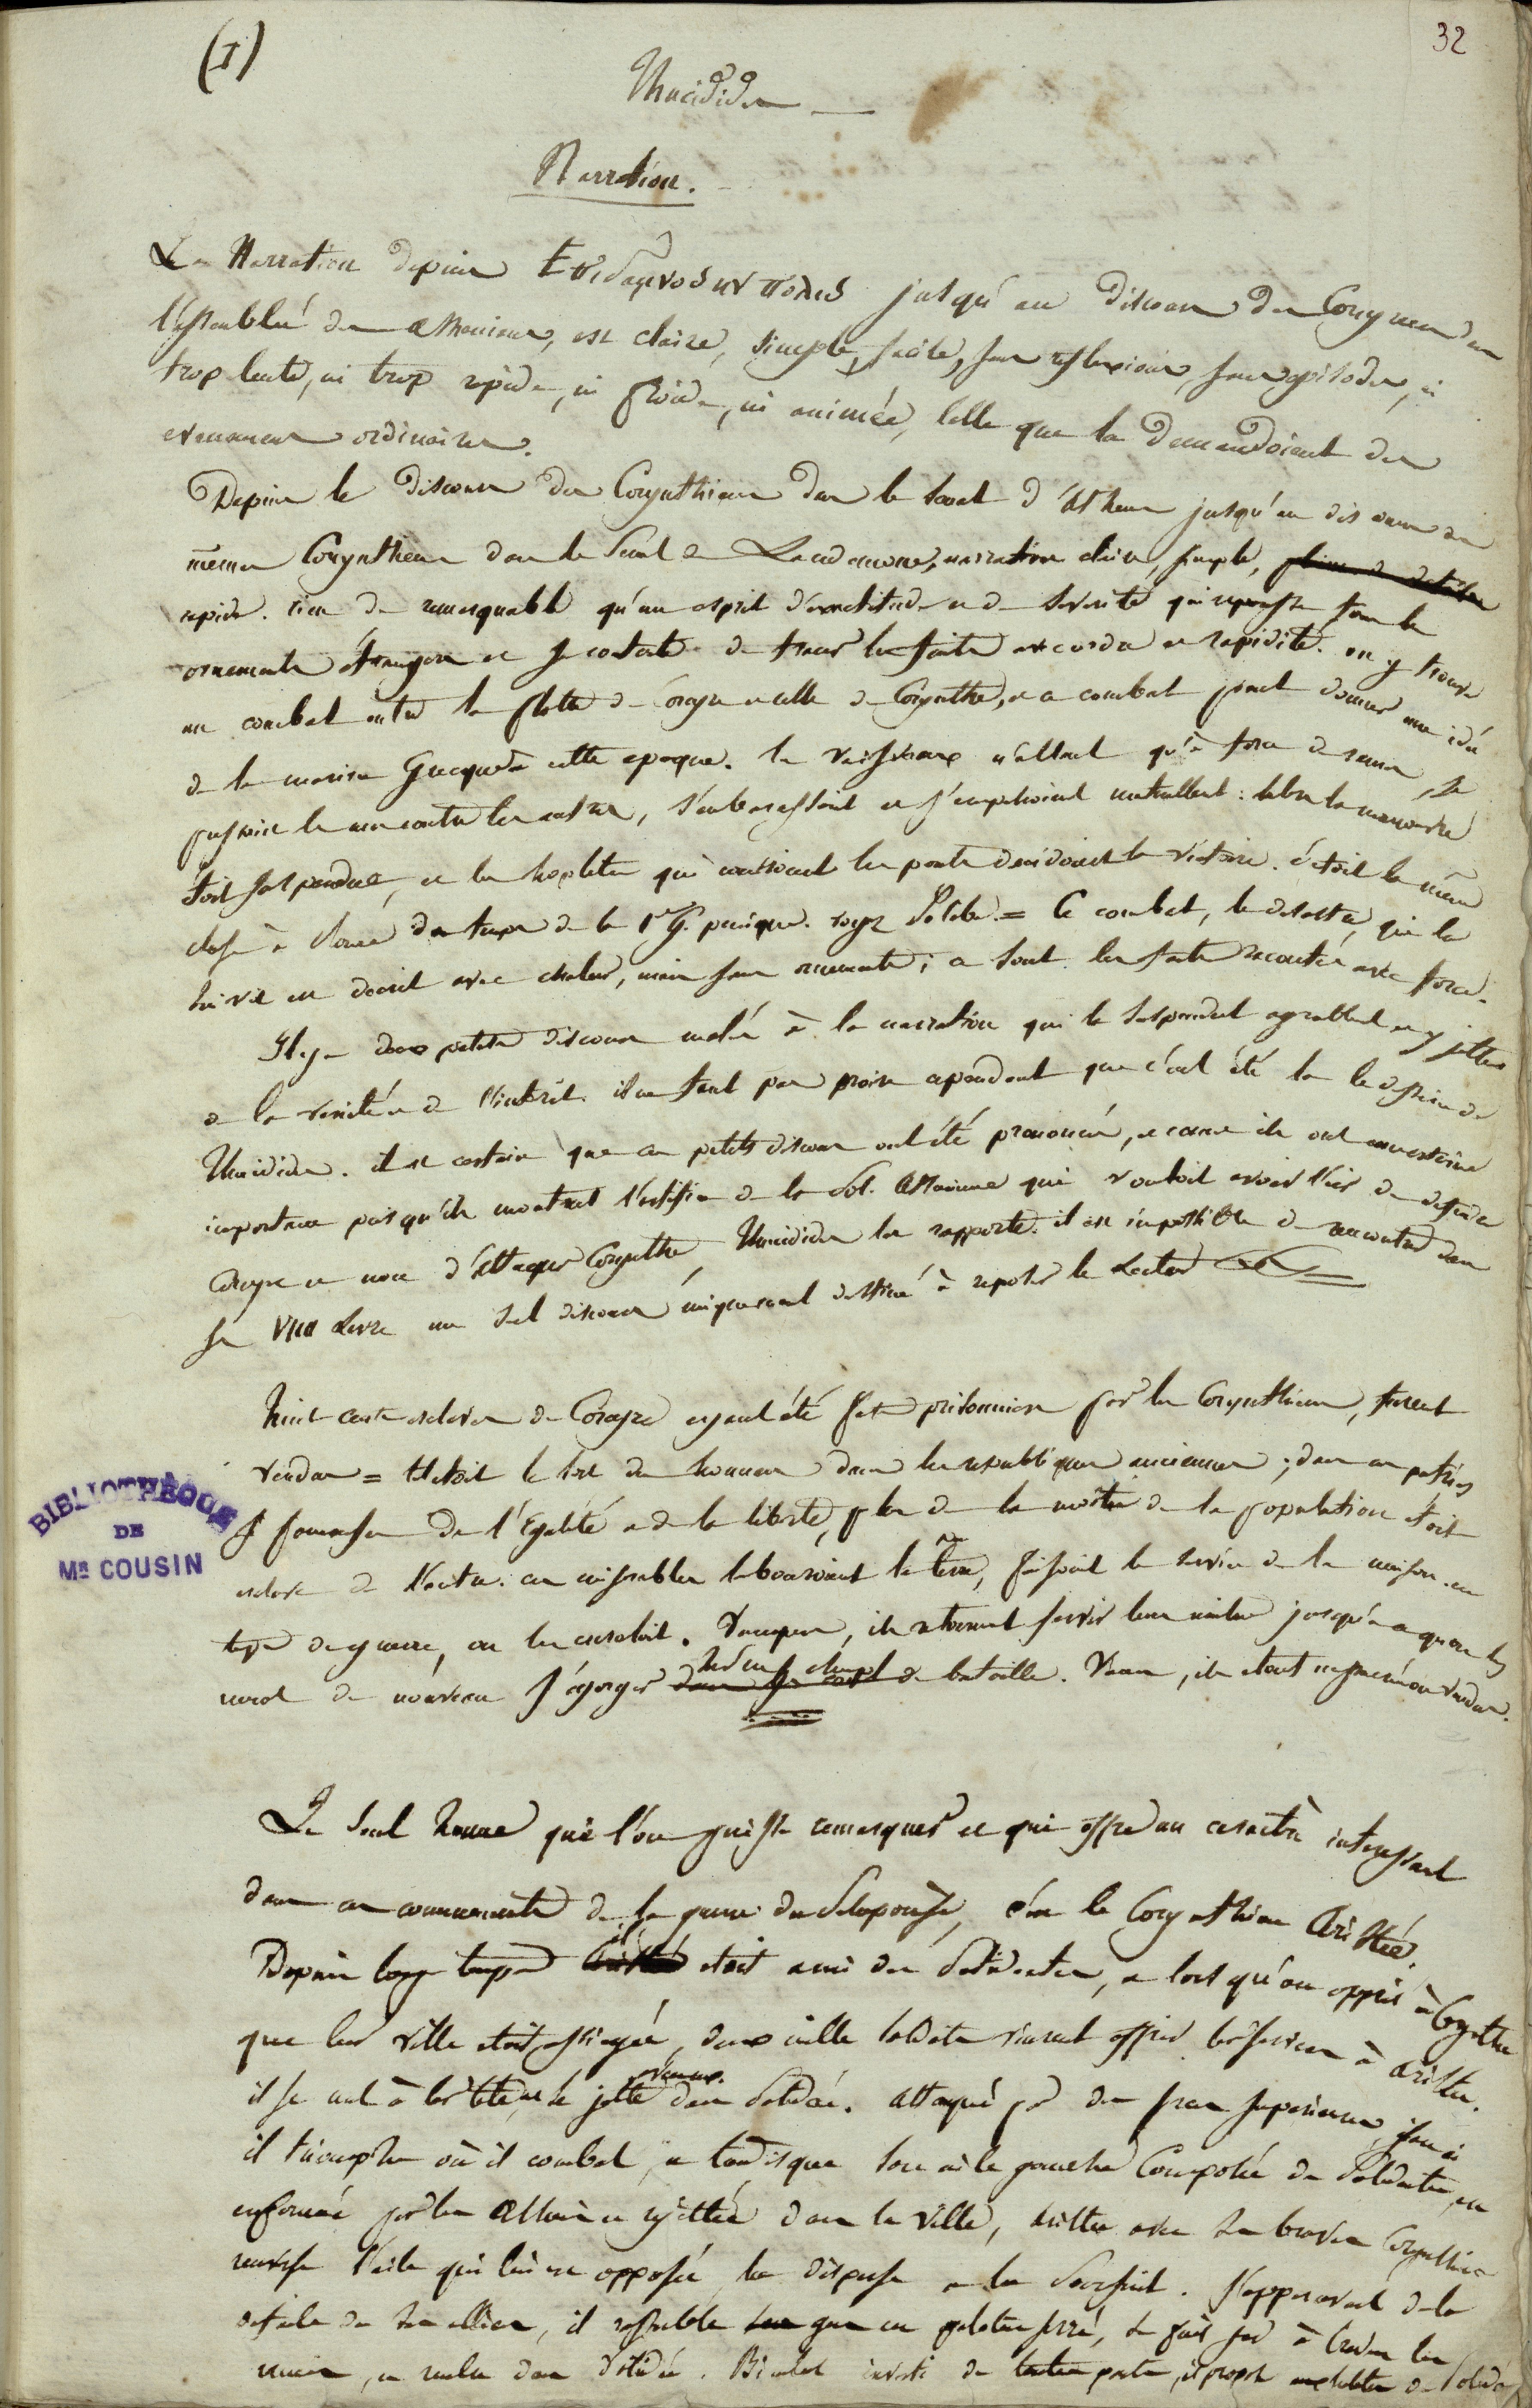 (I)
32
Thucidides
Narration.
La Narration depuis Επιδαμνος ην πολις jusqu'au discours des Corcyreens dans
l'assemblée des Atheniens, est claire, simple, facile, sans reflexions, sans episodes, ni
trop lente, ni trop rapide, ni froide, ni animée, telle que la demandoient des
evenemens ordinaires.
Depuis le discours des Corynthiens dans le Senat d'Athenes jusqu'au discours des
mêmes Corynthiens dans le Senat de Lacedemone, narration claire, simple,
rapide. rien de remarquable qu'un esprit d'exactitude et de severité qui repousse tous les
ornements étrangers et se contente de tracer les faits avec ordre et rapidité. on y trouve
un combat entre la flotte de Corcyre et celle de Corynthe, et ce combat peut donner une idée
de la marine Grecque à cette epoque. les vaisseaux n'allant qu'à force de rames, se
pressoient les uns contre les autres, s'embarassoient et s'empechoient mutuellement: alors la manoeuvre
étoit suspendue, et les hoplites qui couvroient les ponts decidoient la victoire. c'etoit la même
chose à Rome du temps de la 1re G. punique. voyez Polybe. = Ce combat, le desastre qui le
suivit est decrit avec chaleur, mais sans ornements; ce sont les faits racontés avec force.
Il y a deux petits discours mêlés à la narration qui la suspendent agreablement et y jettent
de la varieté et de l'intérêt. il ne faut pas croire cependant que c'ait été là le dessein de
Thucidides. il est certain que ces petits discours ont été prononcés, et comme ils ont une certaine
importance puisqu'ils montrent l'artifice de la Pol. Athenienne qui vouloit avoir l'air de defendre
Corcyre et non d'attaquer Corynthe, Thucidides les rapporte. il est impossible de rencontrer dans
ses VIII Livres un seul discours uniquement destiné à reposer le Lecteur
Huit cents esclaves de Corcyre ayant été faits prisonniers par les Corynthiens, furent
vendus = tel etoit le sort des hommes dans les republiques anciennes; dans ces patries
si fameuses de l'égalité et de la liberté, plus de la moitié de la population étoit
esclave de l'autre. ces miserables labouroient la terre, faisoient le service de la maison. en
temps de guerre, on les enroloit. Vainqueurs, ils retournoient servir leurs maitres jusqu'à ce qu'on les
menât de nouveau s'égorger sur un champ de bataille. Vaincus, ils etoient massacrés ou vendus.
Le seul homme que l'on puisse remarquer et qui offre un caractère interessant
dans ces commencements de la guerre du Peloponèse, c'est le Corynthien Aristée.
Depuis long temps Aristée etoit ami des Potideates, et lorsqu'on apprit à Corynthe
que leur ville etoit assiegée, deux mille soldats vinrent offrir leurs services à Aristée.
il se met à leur tête, et se jette dans Potidée. Attaqué par des forces superieures,
il triomphe où il combat, et tandisque son aile gauche composée de Potideates, est
enfoncée par les Atheniens et rejettée dans la ville, Aristée avec ses braves Corynthiens
renverse l'aile qui lui est opposée, la disperse et la poursuit. s'appercevant de la
defaite de ses alliés, il rassemble ses gens en peloton serré, se fait jour à travers les
ennemis, et rentre dans Potidée. Bientôt investi de toutes parts, il propose aux habitans de Potidée
BIBLIOTHÈQUE
DE
MR COUSIN